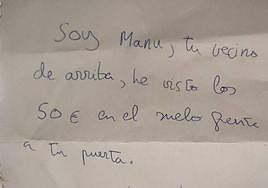 Soy Manu, tu vecino
de arriba, he visto los
50 € en el suelo frente
a tu puerta.